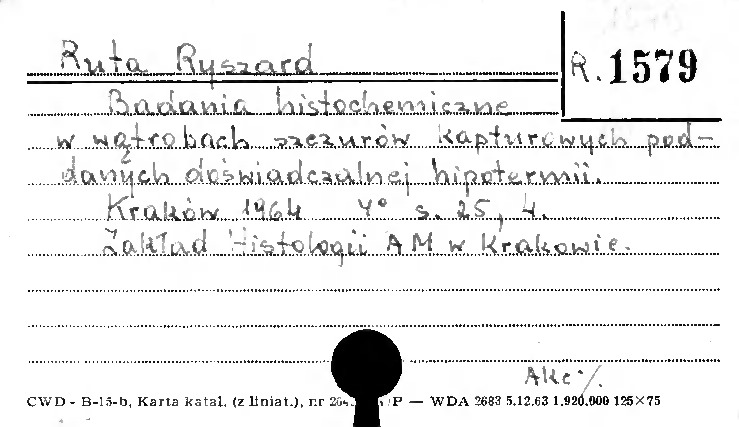 Ruta Ryszard
R. 1579
Badania histochemiczne
w wątrobach szczurów kapturowych pod-
danych doświadczalnej hipotermii.
Kraków 1964 4° s. 25, 4.
Zakład Histologii AM w Krakowie.
Akc /.
CWD - B-15-b, Karta katal. (z liniat.), nr /P — WDA 2683 5.12.63 1.920.000 125×75